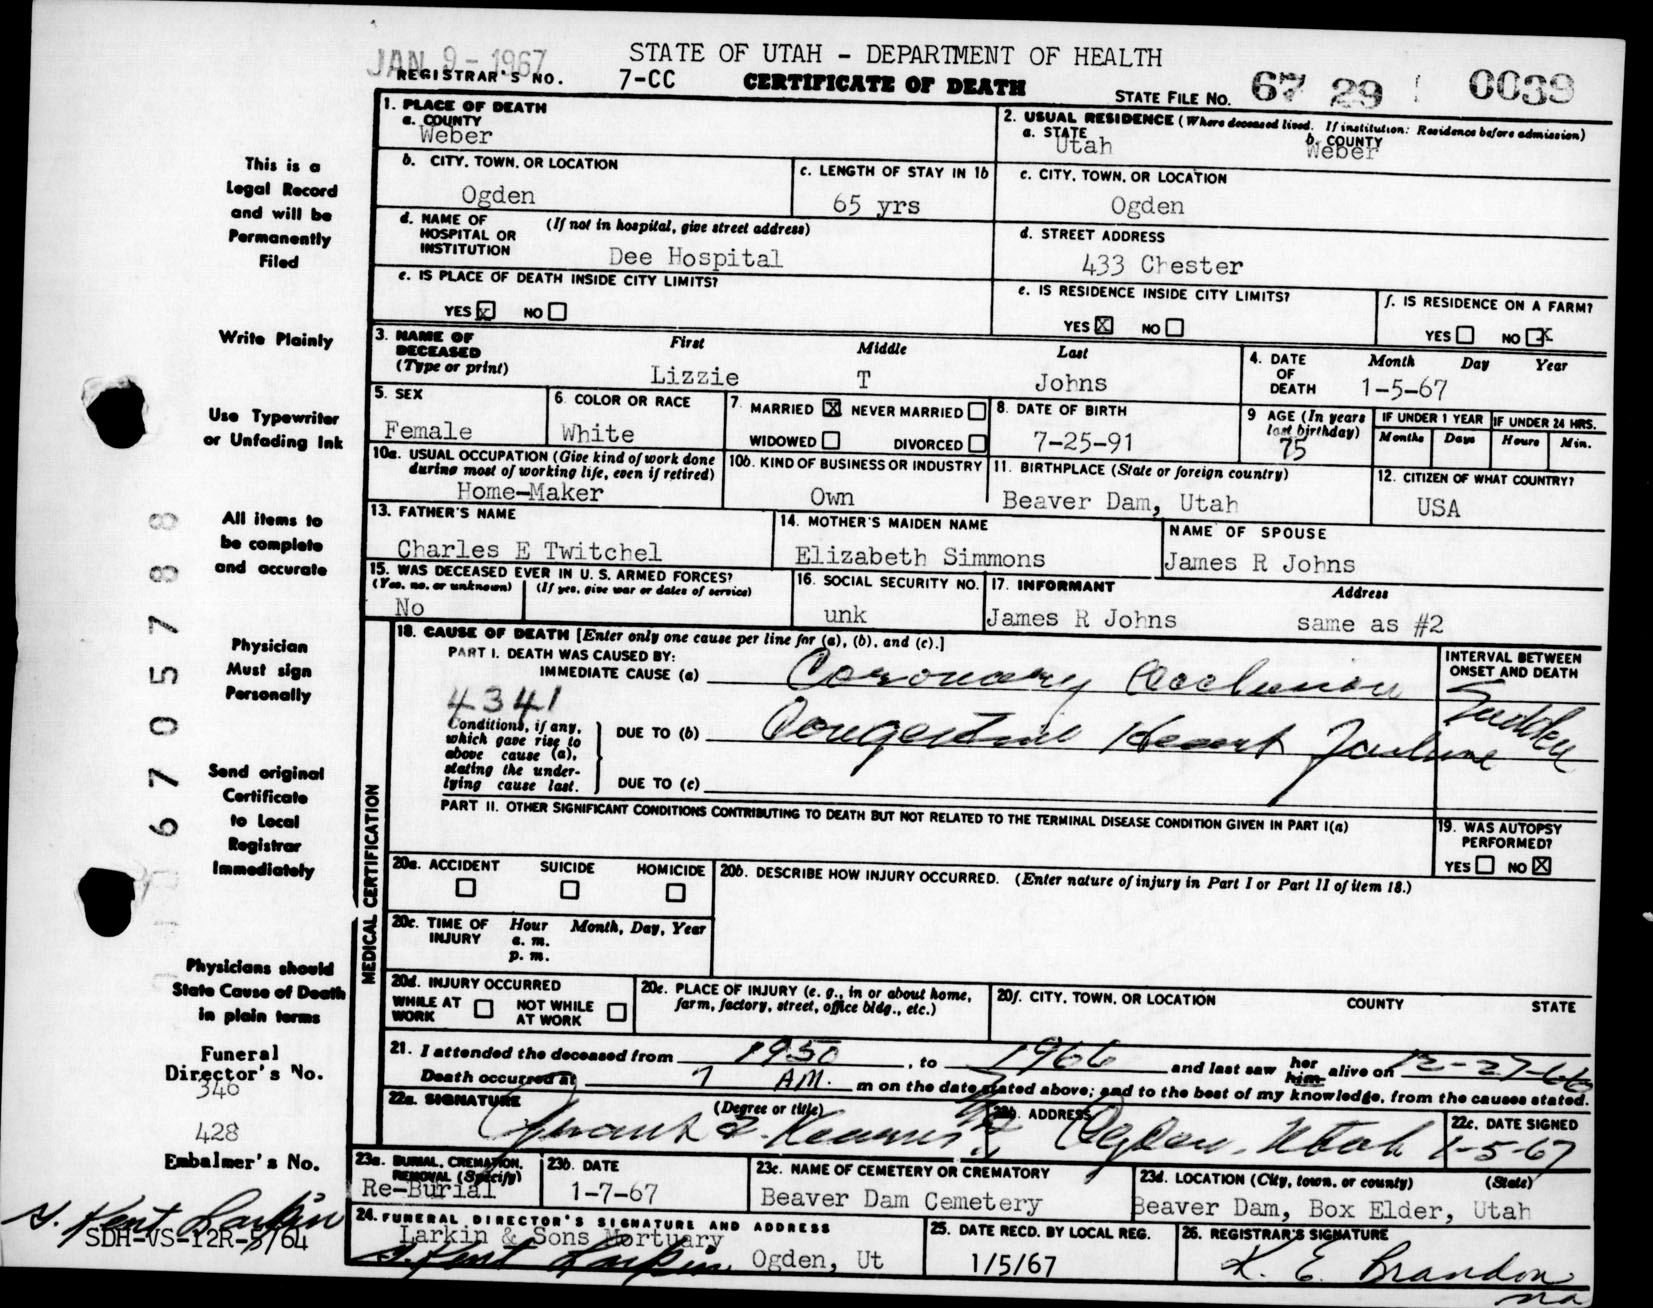 JAN 9 - 1967
STATE OF UTAH - DEPARTMENT OF HEALTH
REGISTRAR'S NO. 7-CC CERTIFICATE OF DEATH STATE FILE NO. 67 29 0039
1. PLACE OF DEATH
a. COUNTY
Weber
2. USUAL RESIDENCE (Where deceased lived. If institution: Residence before admission)
a. STATE
Utah
b. COUNTY
Weber
b. CITY, TOWN, OR LOCATION
Ogden
c. LENGTH OF STAY IN 1b
65 yrs
c. CITY, TOWN, OR LOCATION
Ogden
d. NAME OF HOSPITAL OR INSTITUTION (If not in hospital, give street address)
Dee Hospital
d. STREET ADDRESS
433 Chester
e. IS PLACE OF DEATH INSIDE CITY LIMITS?
YES ☒ NO ☐
e. IS RESIDENCE INSIDE CITY LIMITS?
YES ☒ NO ☐
f. IS RESIDENCE ON A FARM?
YES ☐ NO ☒
3. NAME OF DECEASED (Type or print)
First Middle Last
Lizzie T Johns
4. DATE OF DEATH
Month Day Year
1-5-67
5. SEX
Female
6. COLOR OR RACE
White
7. MARRIED ☒ NEVER MARRIED ☐
WIDOWED ☐ DIVORCED ☐
8. DATE OF BIRTH
7-25-91
9 AGE (In years last birthday)
75
IF UNDER 1 YEAR
Months Days
IF UNDER 24 HRS.
Hours Min.
10a. USUAL OCCUPATION (Give kind of work done during most of working life, even if retired)
Home-Maker
10b. KIND OF BUSINESS OR INDUSTRY
Own
11. BIRTHPLACE (State or foreign country)
Beaver Dam, Utah
12. CITIZEN OF WHAT COUNTRY?
USA
13. FATHER'S NAME
Charles E Twitchel
14. MOTHER'S MAIDEN NAME
Elizabeth Simmons
NAME OF SPOUSE
James R Johns
15. WAS DECEASED EVER IN U. S. ARMED FORCES?
(Yes, no, or unknown) (If yes, give war or dates of service)
No
16. SOCIAL SECURITY NO.
unk
17. INFORMANT Address
James R Johns same as #2
MEDICAL CERTIFICATION
18. CAUSE OF DEATH [Enter only one cause per line for (a), (b), and (c).]
PART I. DEATH WAS CAUSED BY:
IMMEDIATE CAUSE (a) Coronary Occlusion
4341
Conditions, if any, which gave rise to above cause (a), stating the underlying cause last.
DUE TO (b) Congestive Heart Failure
DUE TO (c)
INTERVAL BETWEEN ONSET AND DEATH
Sudden
PART II. OTHER SIGNIFICANT CONDITIONS CONTRIBUTING TO DEATH BUT NOT RELATED TO THE TERMINAL DISEASE CONDITION GIVEN IN PART I(a)
19. WAS AUTOPSY PERFORMED?
YES ☐ NO ☒
20a. ACCIDENT SUICIDE HOMICIDE
☐ ☐ ☐
20b. DESCRIBE HOW INJURY OCCURRED. (Enter nature of injury in Part I or Part II of item 18.)
20c. TIME OF INJURY
Hour Month, Day, Year
a. m.
p. m.
20d. INJURY OCCURRED
WHILE AT WORK ☐ NOT WHILE AT WORK ☐
20e. PLACE OF INJURY (e. g., in or about home, farm, factory, street, office bldg., etc.)
20f. CITY, TOWN, OR LOCATION COUNTY STATE
21. I attended the deceased from 1950, to 1966 and last saw her him alive on 12-27-66
Death occurred at 7 A.M. m on the date stated above; and to the best of my knowledge, from the causes stated.
22a. SIGNATURE (Degree or title)
22b. ADDRESS
Ogden, Utah
22c. DATE SIGNED
1-5-67
23a. BURIAL, CREMATION, REMOVAL (Specify)
Re-Burial
23b. DATE
1-7-67
23c. NAME OF CEMETERY OR CREMATORY
Beaver Dam Cemetery
23d. LOCATION (City, town, or county) (State)
Beaver Dam, Box Elder, Utah
24. FUNERAL DIRECTOR'S SIGNATURE AND ADDRESS
Larkin & Sons Mortuary
G. Kent Larkin Ogden, Ut
25. DATE RECD. BY LOCAL REG.
1/5/67
26. REGISTRAR'S SIGNATURE
K. E. Brandon
This is a
Legal Record
and will be
Permanently
Filed
Write Plainly
Use Typewriter
or Unfading Ink
All items to
be complete
and accurate
Physician
Must sign
Personally
Send original
Certificate
to Local
Registrar
Immediately
Physicians should
State Cause of Death
in plain terms
Funeral
Director's No.
346
428
Embalmer's No.
G. Kent Larkin
SDH-VS-12R-5/64
6705788